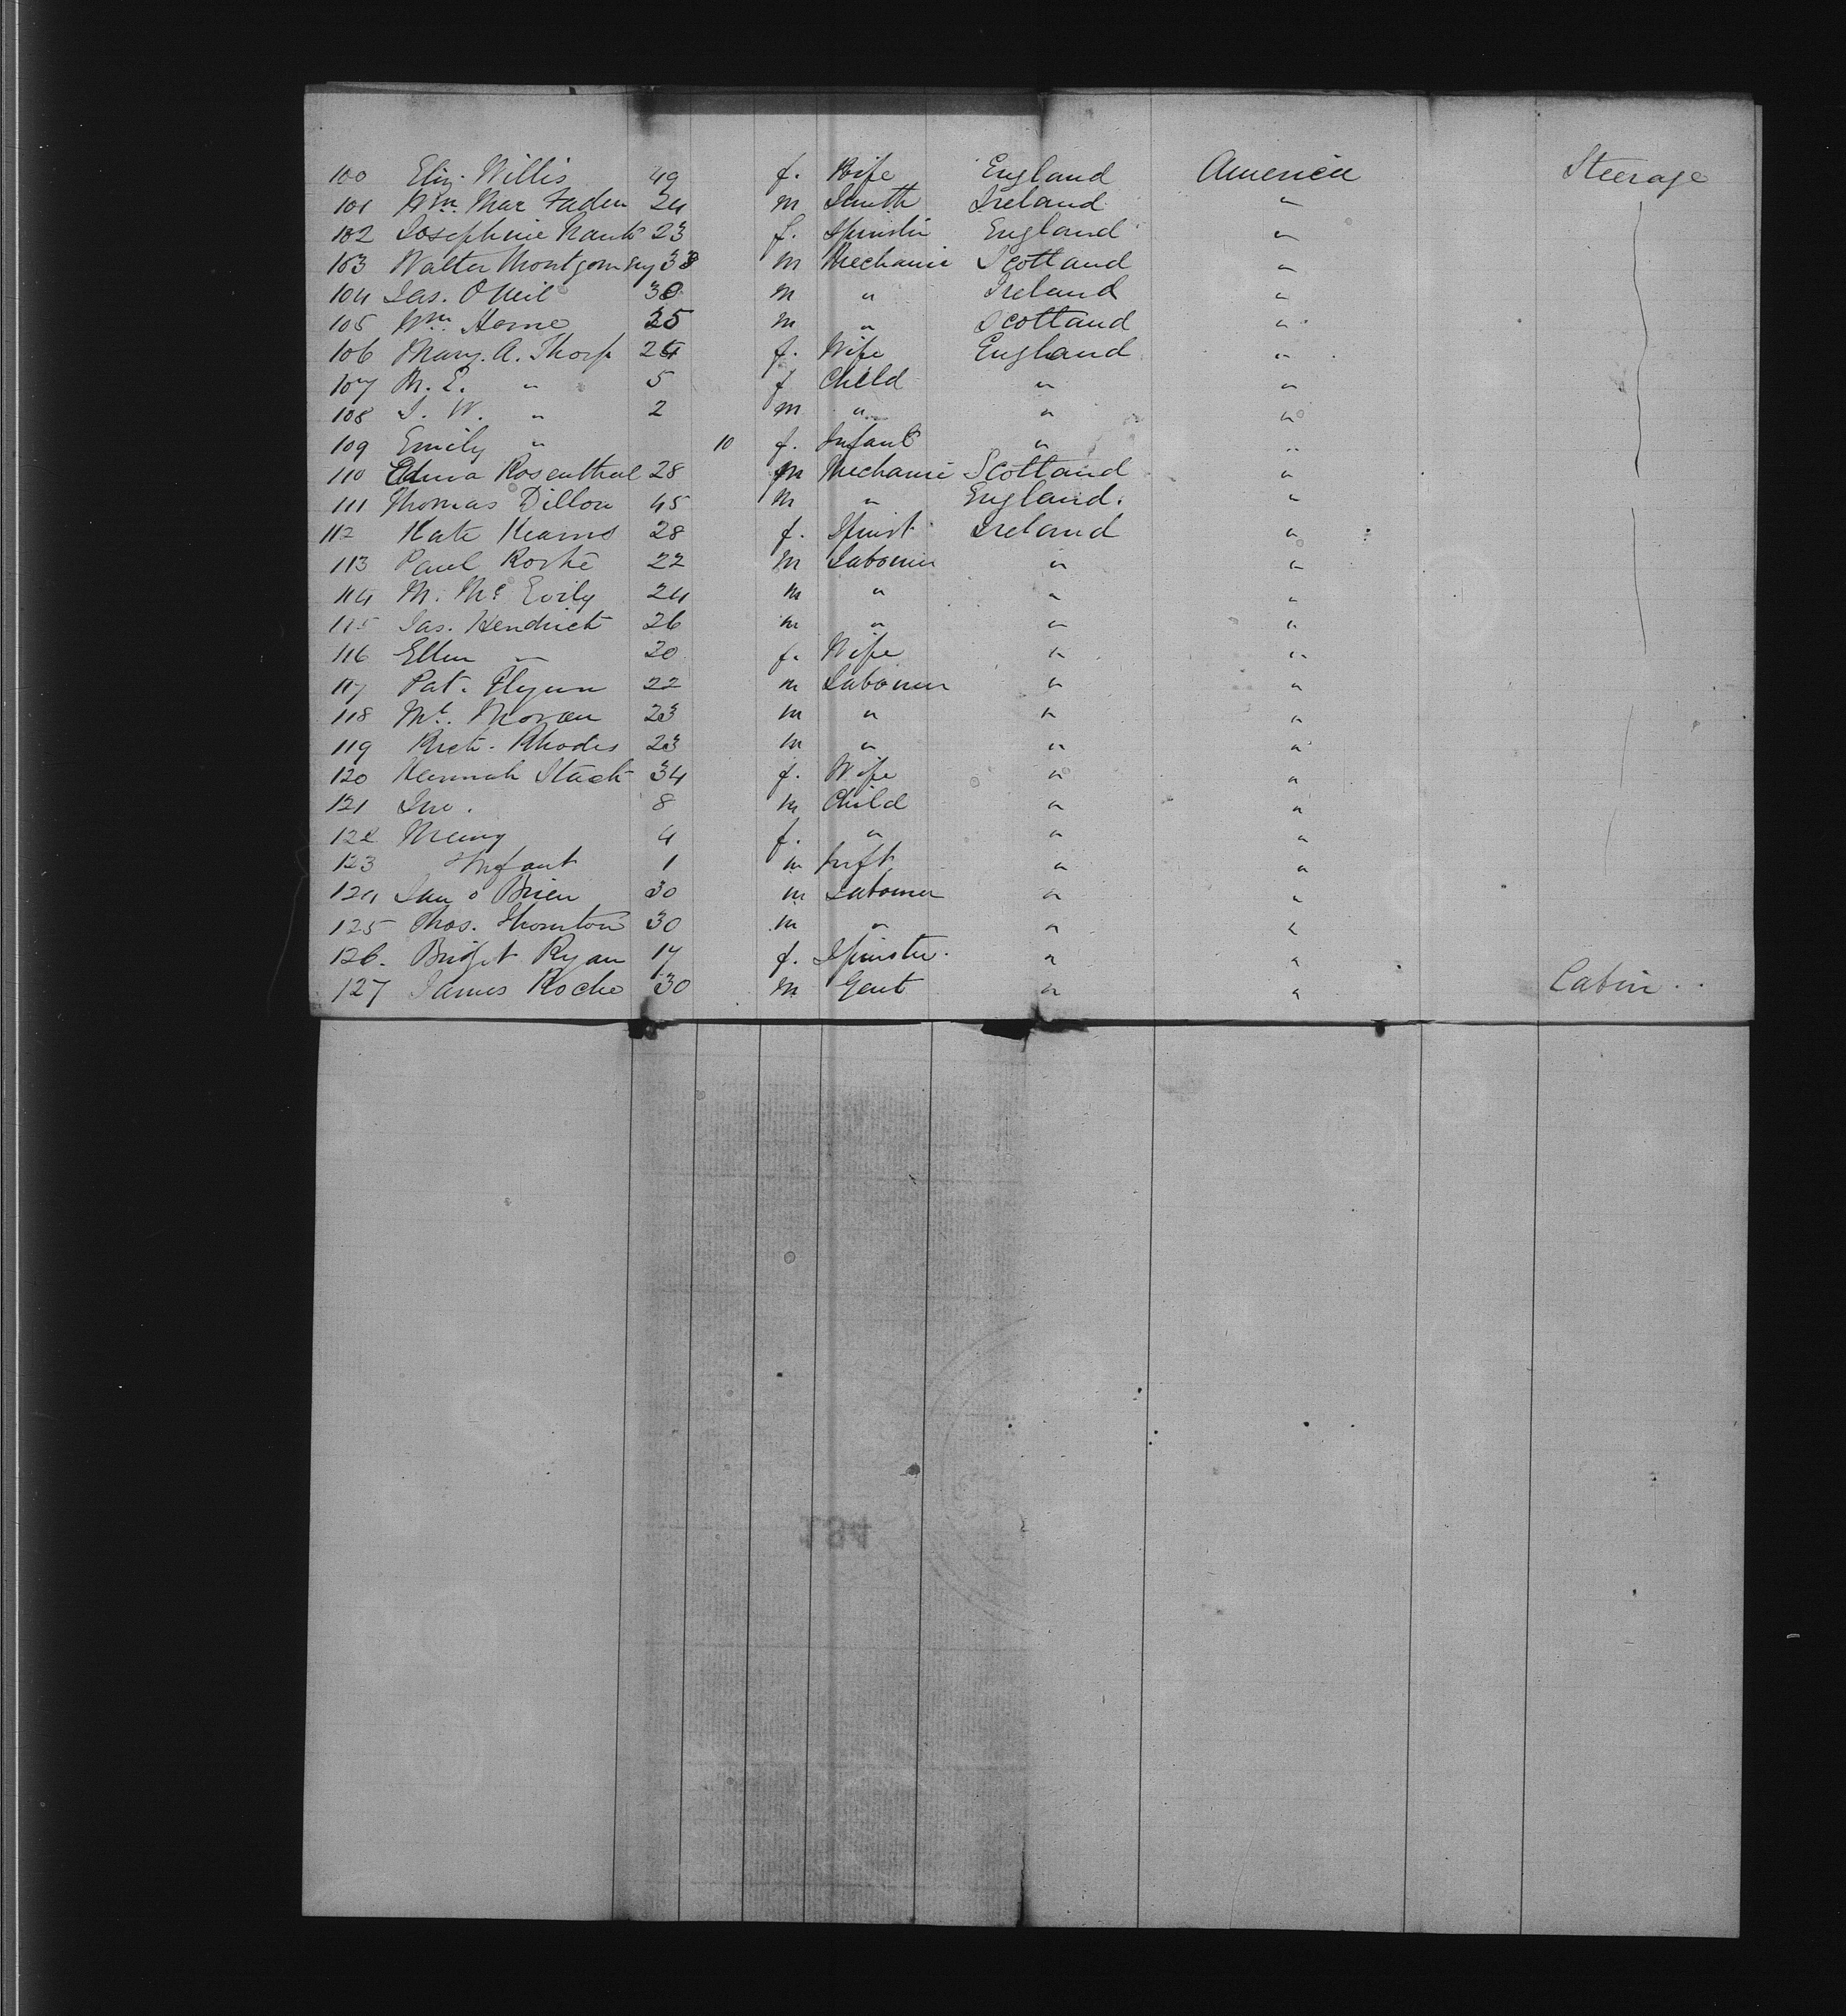 100 Eliz. Willis 49 f. Wife England America Steerage
101 Wm. Mac Faden 24 m Smith Ireland "
102 Josephine 23 f. Spinster England "
103 Walter Montgomery 33 m Mechanic Scotland "
104 Jas. O Neil 30 m " Ireland "
105 Wm. Horne 25 m " Scotland "
106 Mary. A. Thorp 24 f. Wife England "
107 M. E. " 5 f Child " "
108 J. W. " 2 m " " "
109 Emily " 10 f. Infant " "
110 Rosenthal 28 m Mechanic Scotland "
111 Thomas Dillon 45 m " England. "
112 Kate Kearns 28 f. Spinst Ireland "
113 Paul Roche 22 m Labourer " "
114 M. Mc Evily 24 m " " "
115 Jas. Hendrick 26 m " " "
116 Ellen " 20 f. Wife " "
117 Pat. Flynn 22 m Labourer " "
118 Mt. Moran 23 m " " "
119 Rich. Rhodes 23 m " " "
120 Hannah Stack 34 f. Wife " "
121 Jno. 8 m Child " "
122 Mary 4 f. " " "
123 Infant 1 m Inft " "
124 Jno O Brien 30 m Labourer " "
125 Thos. Thornton 30 m " " "
126. Bridget Ryan 17 f. Spinster. " "
127 James Roche 30 m Gent " " Cabin..
194